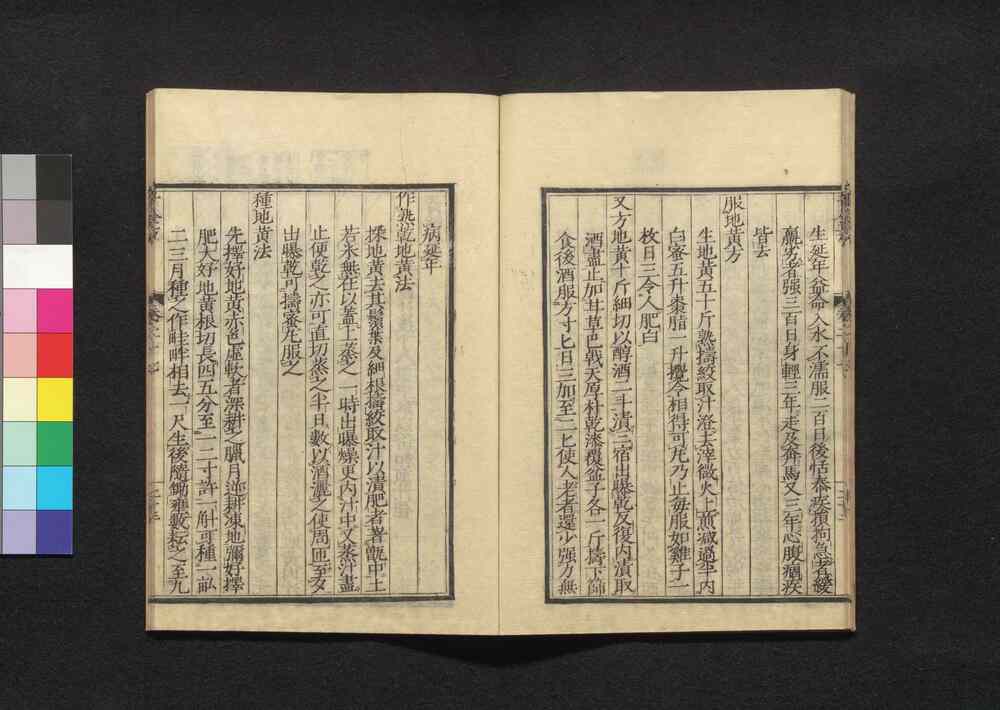 生延年益命入水不濡服二百日後恬泰疾損狗急者緩
羸劣者强三百日身輕三年走及奔馬又三年心腹痼疾
皆去
服地黃方
生地黃五十斤熟擣絞取汁澄去滓微火上煎減過半內
白蜜五升棗脂一升攪令相得可丸乃止每服如雞子一
枚日三令人肥白
又方地黃十斤細切以醇酒二斗漬三宿出曝乾反復內漬取
酒盡止加甘草巴戟天厚朴乾漆覆盆子各一斤擣下篩
食後酒服方寸匕日三加至二匕使人老者還少强力無
病延年
作熟乾地黃法
採地黃去其鬚葉及細根擣絞取汁以漬肥者著甑中土
若米無在以蓋上蒸之一時出曝燥更內汁中又蒸汁盡
止便乾之亦可直切蒸之半日數以酒灑之使周匝至夕
出曝乾可擣蜜丸服之
種地黃法
先擇好地黃赤色虛軟者深耕之臘月逆耕凍地彌好擇
肥大好地黃根切長四五分至一二寸許一斛可種一畝
二三月種之作畦畔相去一尺生後隨鋤壅數耘之至九